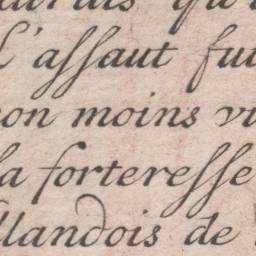 l'assaut fut
non moins vi
la forteresse
llandois de